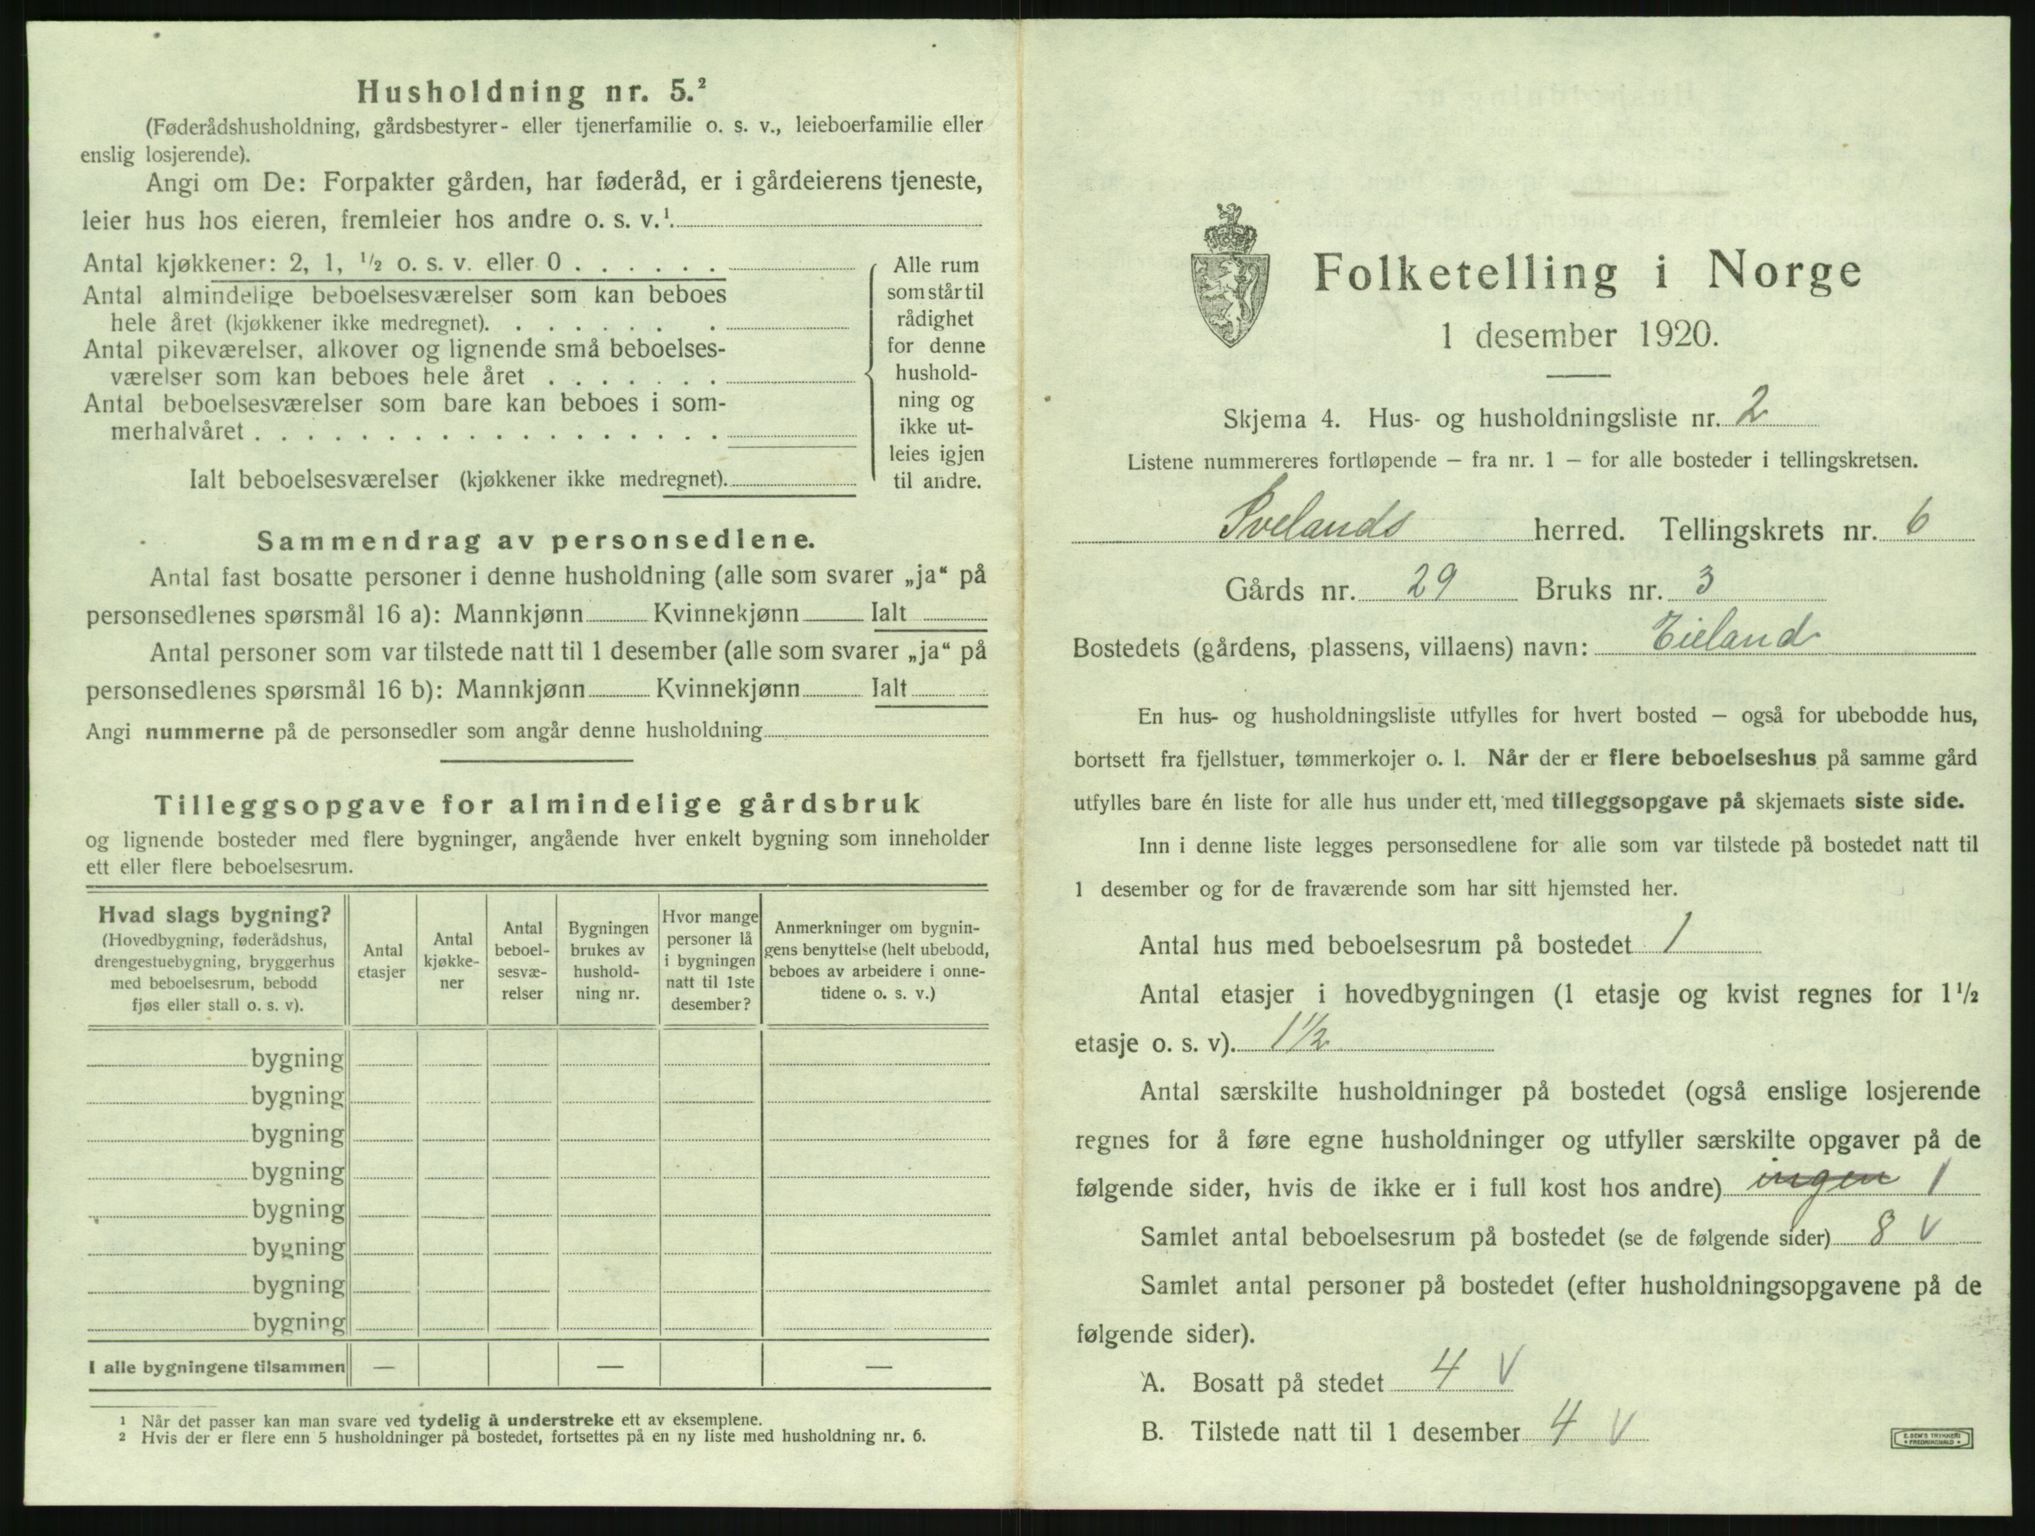 Husholdning nr. 5.²
(Føderådshusholdning, gårdsbestyrer- eller tjenerfamilie o. s. v., leieboerfamilie eller
enslig losjerende).
Angi om De: Forpakter gården, har føderåd, er i gårdeierens tjeneste,
leier hus hos eieren, fremleier hos andre o. s. v.¹
Antal kjøkkener: 2, 1, ½ o. s. v. eller 0 . . . . . .
Antal almindelige beboelsesværelser som kan beboes
hele året (kjøkkener ikke medregnet). . . . . . . .
Antal pikeværelser, alkover og lignende små beboelses-
værelser som kan beboes hele året . . . . . . .
Antal beboelsesværelser som bare kan beboes i som-
merhalvåret . . . . . . . . . . . . . . . . . .
Ialt beboelsesværelser (kjøkkener ikke medregnet).
Alle rum
som står til
rådighet
for denne
hushold-
ning og
ikke ut-
leies igjen
til andre.
Sammendrag av personsedlene.
Antal fast bosatte personer i denne husholdning (alle som svarer „ja“ på
personsedlenes spørsmål 16 a): Mannkjønn Kvinnekjønn Ialt
Antal personer som var tilstede natt til 1 desember (alle som svarer „ja“ på
personsedlenes spørsmål 16 b): Mannkjønn Kvinnekjønn Ialt
Angi nummerne på de personsedler som angår denne husholdning
Tilleggsopgave for almindelige gårdsbruk
og lignende bosteder med flere bygninger, angående hver enkelt bygning som inneholder
ett eller flere beboelsesrum.
Hvad slags bygning?
(Hovedbygning, føderådshus,
drengestuebygning, bryggerhus
med beboelsesrum, bebodd
fjøs eller stall o. s. v).
Antal
etasjer
Antal
kjøkke-
ner
Antal
beboel-
sesvæ-
relser
Bygningen
brukes av
hushold-
ning nr.
Hvor mange
personer lå
i bygningen
natt til 1ste
desember?
Anmerkninger om bygnin-
gens benyttelse (helt ubebodd,
beboes av arbeidere i onne-
tidene o. s. v.)
bygning
bygning
bygning
bygning
bygning
bygning
bygning
bygning
I alle bygningene tilsammen — — —
¹ Når det passer kan man svare ved tydelig å understreke ett av eksemplene.
² Hvis der er flere enn 5 husholdninger på bostedet, fortsettes på en ny liste med husholdning nr. 6.
Folketelling i Norge
1 desember 1920.
Skjema 4. Hus- og husholdningsliste nr. 2
Listene nummereres fortløpende – fra nr. 1 – for alle bosteder i tellingskretsen.
Ivelands herred. Tellingskrets nr. 6
Gårds nr. 29 Bruks nr. 3
Bostedets (gårdens, plassens, villaens) navn: Eieland
En hus- og husholdningsliste utfylles for hvert bosted – også for ubebodde hus,
bortsett fra fjellstuer, tømmerkojer o. l. Når der er flere beboelseshus på samme gård
utfylles bare én liste for alle hus under ett, med tilleggsopgave på skjemaets siste side.
Inn i denne liste legges personsedlene for alle som var tilstede på bostedet natt til
1 desember og for de fraværende som har sitt hjemsted her.
Antal hus med beboelsesrum på bostedet 1
Antal etasjer i hovedbygningen (1 etasje og kvist regnes for 1½
etasje o. s. v). 1½
Antal særskilte husholdninger på bostedet (også enslige losjerende
regnes for å føre egne husholdninger og utfyller særskilte opgaver på de
følgende sider, hvis de ikke er i full kost hos andre) ingen 1
Samlet antal beboelsesrum på bostedet (se de følgende sider) 8 v
Samlet antal personer på bostedet (efter husholdningsopgavene på de
følgende sider).
A. Bosatt på stedet 4 v
B. Tilstede natt til 1 desember 4 v